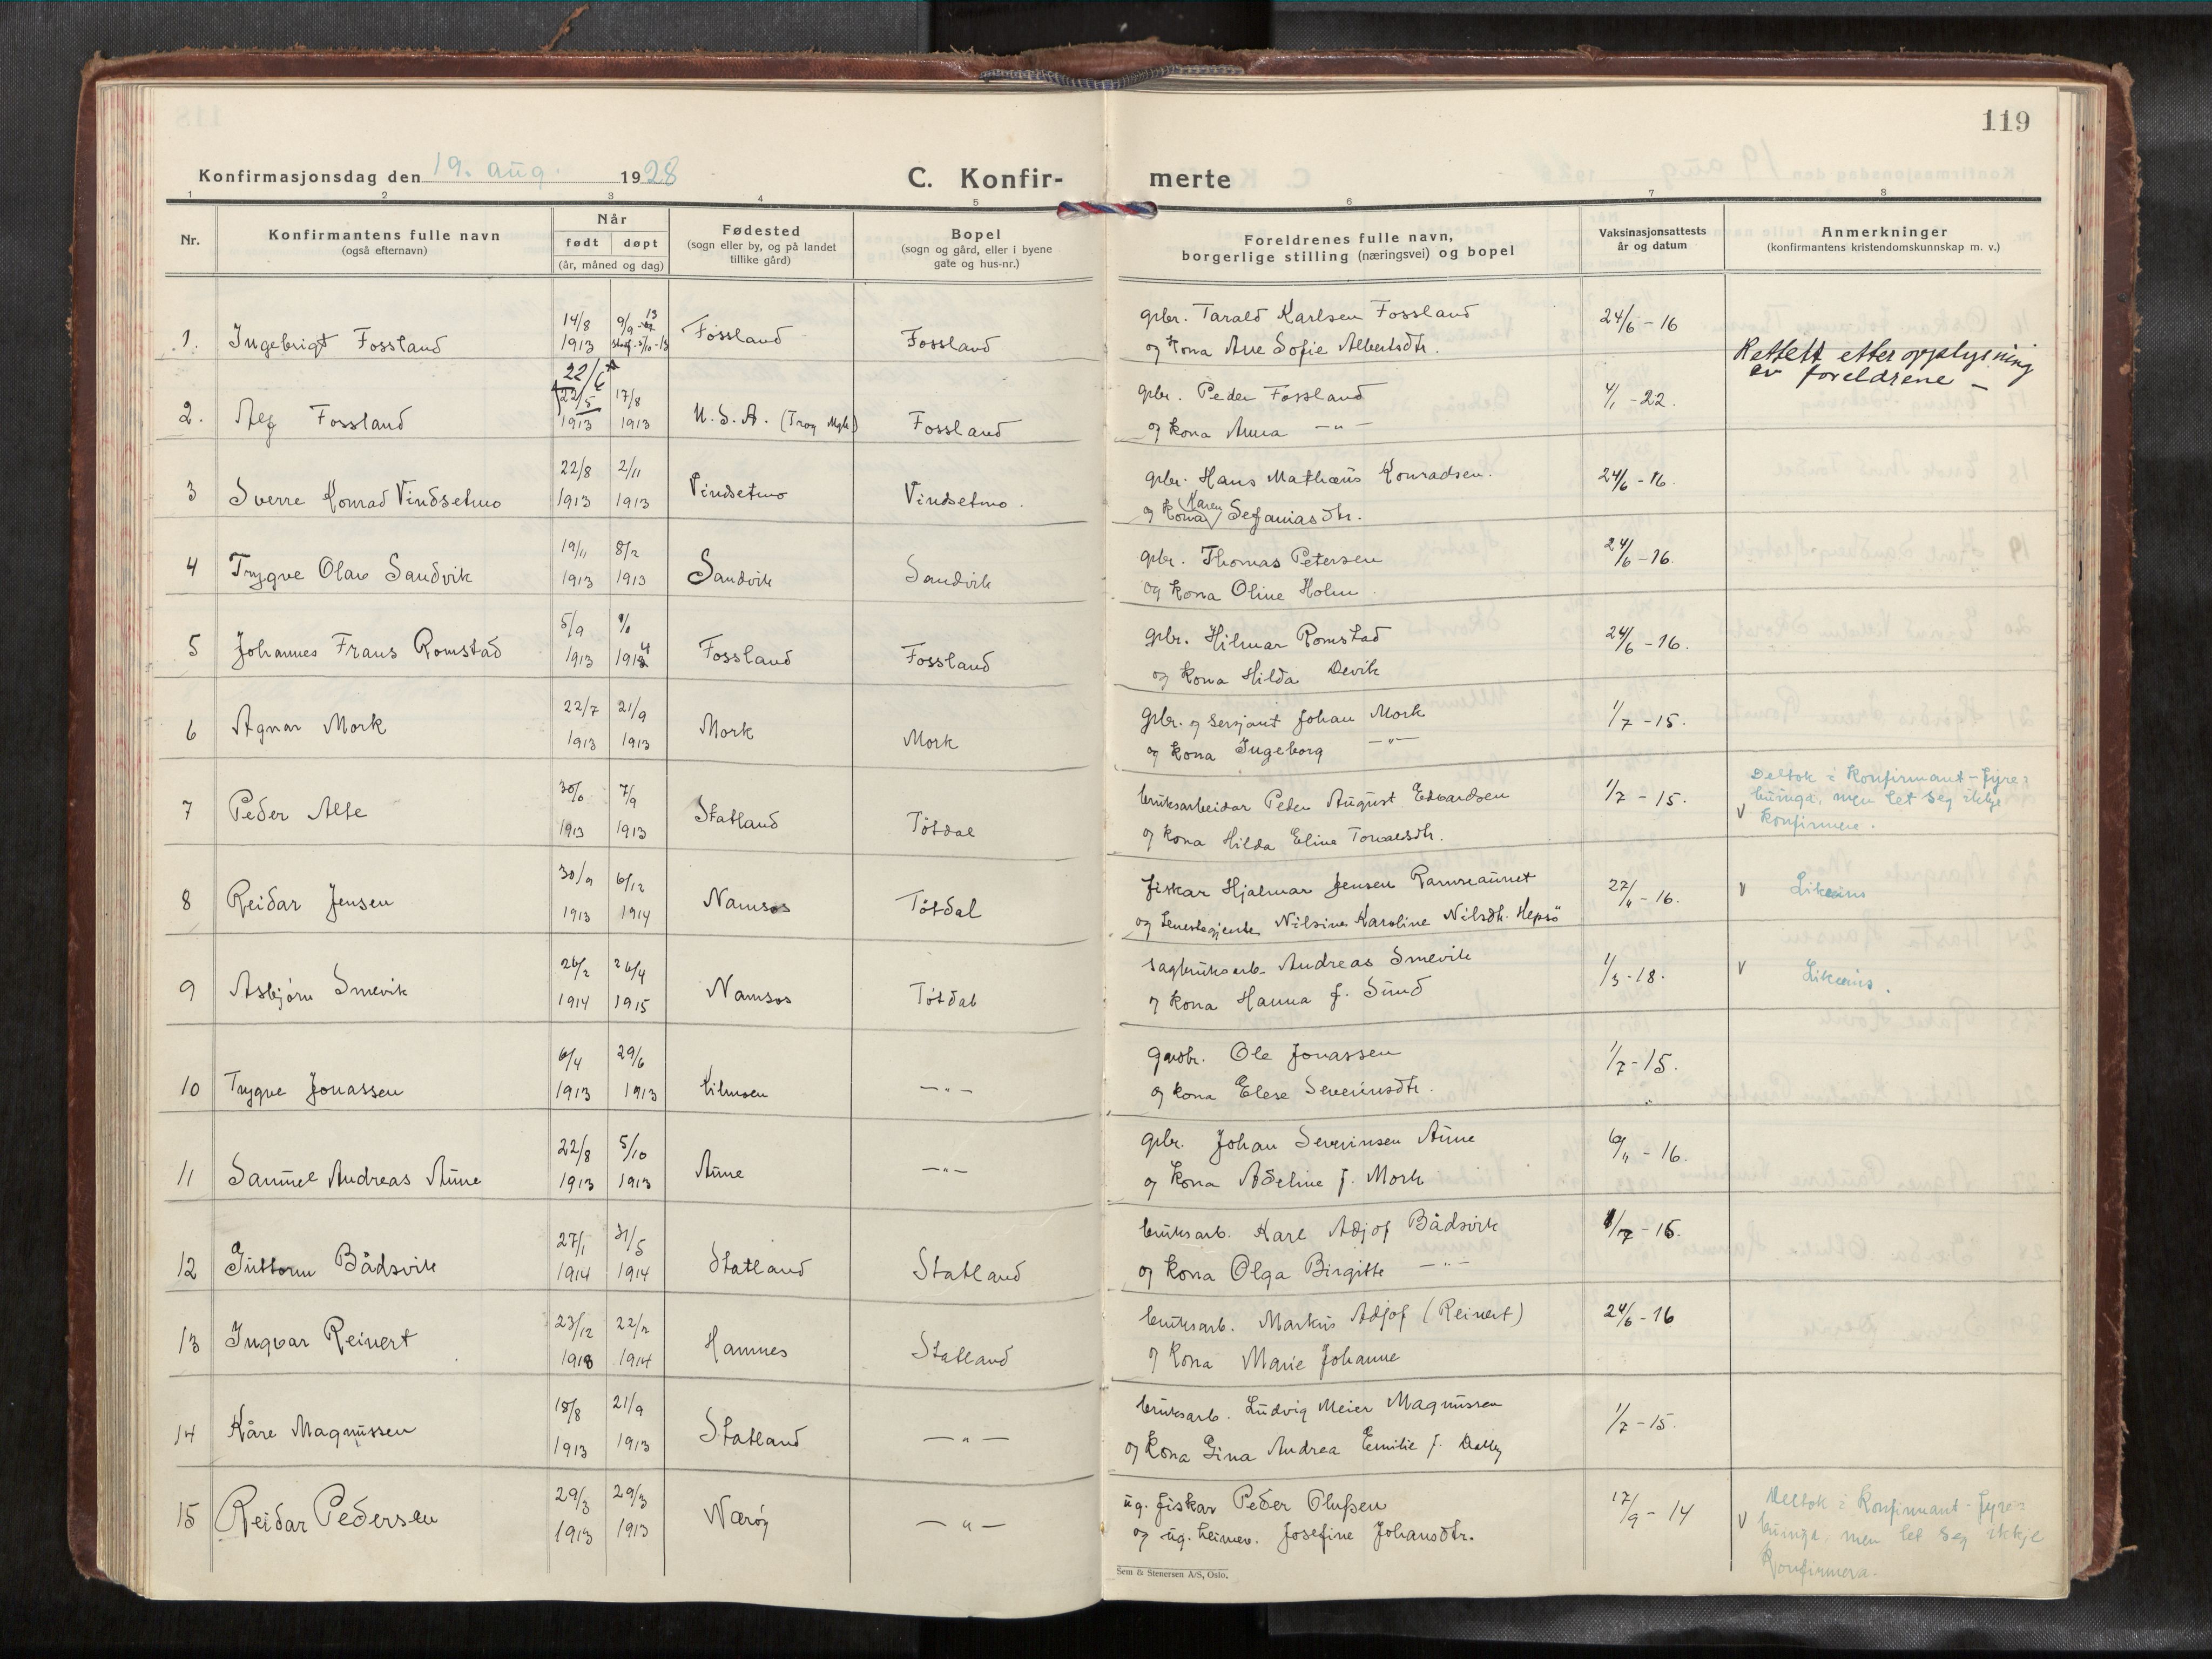 119
Konfirmasjonsdag den 19. aug. 1928
C. Konfir-
merte
1 2 3 4 5 6 7 8
Nr.
Konfirmantens fulle navn
(også efternavn)
Når
født døpt
(år, måned og dag)
Fødested
(sogn eller by, og på landet
tillike gård)
Bopel
(sogn og gård, eller i byene
gate og hus-nr.)
Foreldrenes fulle navn,
borgerlige stilling (næringsvei) og bopel
Vaksinasjonsattests
år og datum
Anmerkninger
(konfirmantens kristendomskunnskap m. v.)
1. Ingebrigt Fossland 14/8 1913 9/9-13 Fossland Fossland
gbr. Tarald Karlsen Fossland 24/6-16
og kona Ane Sofie Albertsdtr.
Rettett etter opplysning
av foreldrene -
2. Alf Fossland 22/6 22/5 1913 17/8 1913 U.S.A. Fossland
gbr. Peder Fossland 4/1-22.
og kona Anna -"-
3 Sverre Konrad Vindsetmo 22/8 1913 2/11 1913 Vindsetmo Vindsetmo.
gbr. Hans Mathæus Konradsen. 24/6-16.
og kona Karen Sefaniasdtr.
4 Trygve Olav Sandvik 19/11 1913 8/2 1913 Sandvik Sandvik
gbr. Thomas Petersen 24/6-16.
og kona Oline Holm.
5 Johannes Frans Romstad 5/9 1913 1914 Fossland Fossland
gbr. Hilmar Romstad 24/6-16.
og kona Hilda Devik
6 Agnar Mork 22/7 1913 21/9 1913 Mork Mork
gbr. og sersjant Johan Mork 1/7-15.
og kona Ingeborg -"-
7 Peder Alte 1913 7/9 1913 Statland Tøtdal
bruksarbeidar Peder August Edvardsen 1/7-15.
og kona Hilda Eline Torvaldsdtr.
Deltok i konfirmant-fyre=
buinga, men let seg ikkje
v konfirmere.
8 Reidar Jensen 30/9 1913 6/12 1914 Namsos Tøtdal
fiskar Hjalmar Jensen Ramseaunet 27/11-16. v Likeeins
og tenestegjente Nilsine Karoline Nilsdtr. Hepsö
9 Asbjørn Smevik 26/2 1914 26/4 1915 Namsos Tøtdal
sagbruksarb. Andreas Smevik 1/3-18. v Likeeins.
og kona Hanna f. Sund
10 Trygve Jonassen 6/4 1913 29/6 1913 -"-
gardbr. Ole Jonassen 1/7-15.
og kona Elese Severinsdtr.
11 Samuel Andreas Aune 22/8 1913 5/10 1913 Aune -"-
gbr. Johan Severinsen Aune 6/11-16.
og kona Adeline f. Mork
12 Guttorm Bådsvik 27/1 1914 31/5 1914 Statland Statland
bruksarb. Karl Adjof Bådsvik 1/7-15.
og kona Olga Birgitte -"-
13 Ingvar Reinert 23/12 1913 22/2 1914 Hamnes Statland
bruksarb. Markus Adjof (Reinert) 24/6-16
og kona Marie Johanne
14 Kåre Magnussen 18/8 1913 21/9 1913 Statland -"-
bruksarb. Ludvig Meier Magnussen 1/7-15.
og kona Gina Andrea Emilie f. Dalby
15 Reidar Pedersen 29/3 1913 29/3 1913 Nærøy -"-
ug. fiskar Peder Olufsen 17/9-14
og ug. heimev. Josefine Johansdtr.
Deltok i konfirmant-fyre=
v buinga, men let seg ikkje
konfirmera.
Sem & Stenersen A/S, Oslo.